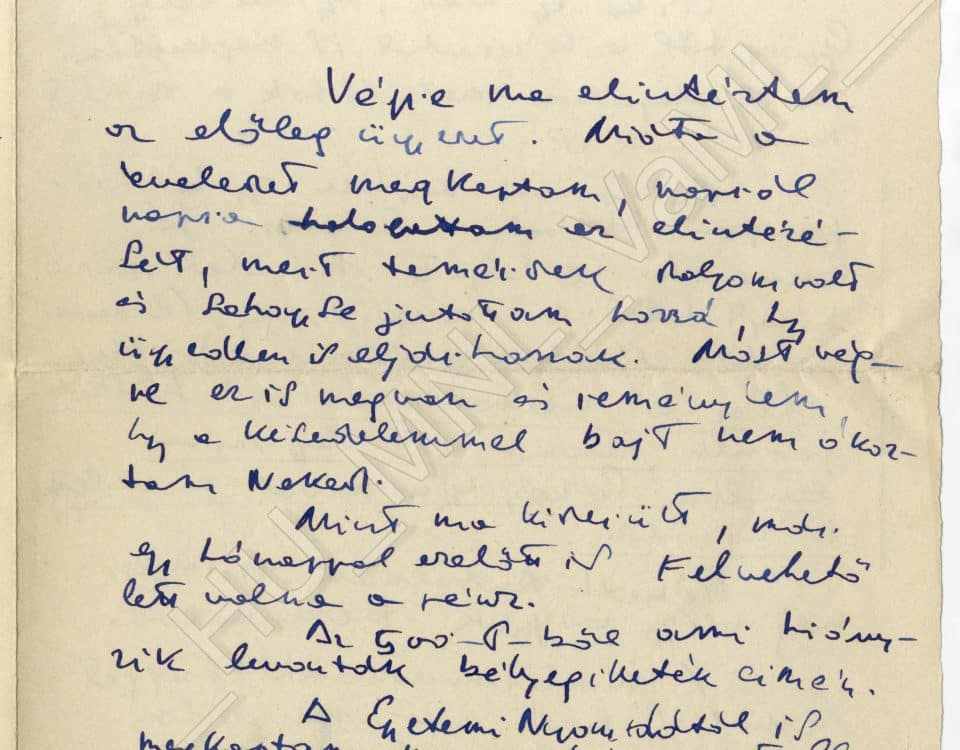 Végre ma elintéztem
az előleg ügyenet. Mióta a
leveledet megkaptam, napról
napra halogattam ez elintézé-
sét, mert temérdek dolgom volt
és sehogyse jutottam hozzá, hy
ügyedben is eljárhassak. Most vég-
re ez is megvan és remélem,
hy a késedelemmel bajt nem okoz-
tam Neked.
Mint ma kiderült, már
egy hónappal ezelőtt is felvehető
lett volna a pénz.
Az 500-P-ből ami hiány-
zik levonták bélyegilleték címén.
A Egyetemi Nyomdától is
megkaptam
HU_MNL_VaML_